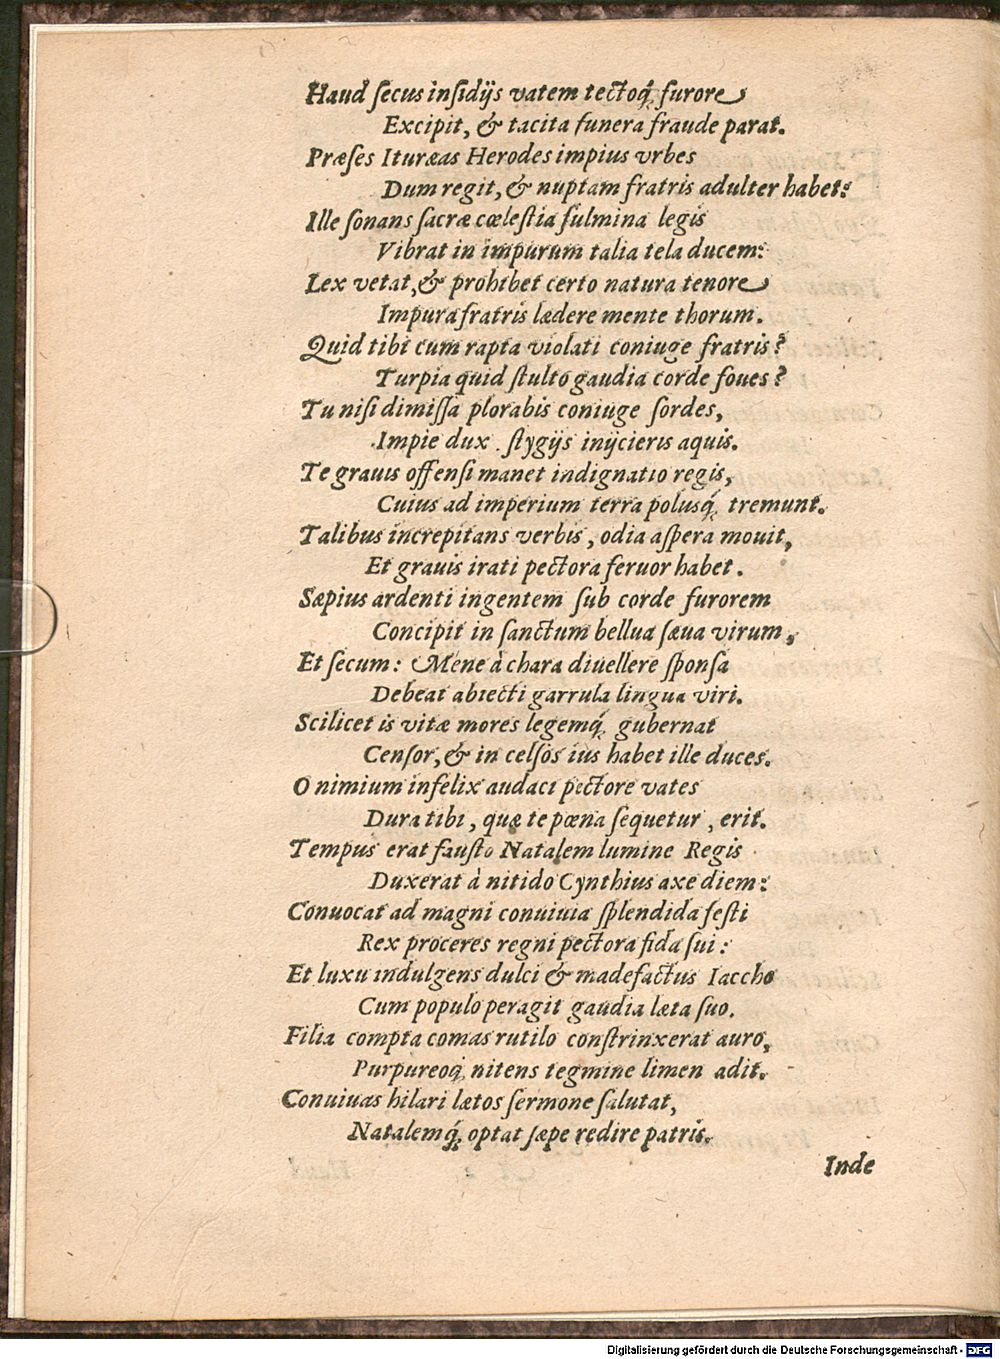 Haud ſecus inſidijs vatem tectoq́; furore
Excipit, & tacita funera fraude parat.
Præſes Ituræas Herodes impius vrbes
Dum regit, & nuptam fratris adulter habet:
Ille ſonans ſacræ cœleſtia fulmina legis
Vibrat in impurum talia tela ducem:
Lex vetat, & prohibet certo natura tenore
Impura fratris lædere mente thorum.
Quid tibi cum rapta violati coniuge fratris?
Turpia quid ſtulto gaudia corde foues?
Tu niſi dimiſſa plorabis coniuge ſordes,
Impie dux ſtygijs inijcieris aquis.
Te grauis offenſi manet indignatio regis,
Cuius ad imperium terra polusq́; tremunt.
Talibus increpitans verbis, odia aſpera mouit,
Et grauis irati pectora feruor habet.
Sæpius ardenti ingentem ſub corde furorem
Concipit in ſanctum bellua ſæua virum,
Et ſecum: Mene à chara diuellere ſponſa
Debeat abiecti garrula lingua viri.
Scilicet is vitæ mores legemq́; gubernat
Cenſor, & in celſos ius habet ille duces.
O nimium infelix audaci pectore vates
Dura tibi, quæ te pœna ſequetur, erit.
Tempus erat fauſto Natalem lumine Regis
Duxerat à nitido Cynthius axe diem:
Conuocat ad magni conuiuia ſplendida feſti
Rex proceres regni pectora fida ſui:
Et luxu indulgens dulci & madefactus Iaccho
Cum populo peragit gaudia læta ſuo.
Filia compta comas rutilo conſtrinxerat auro,
Purpureoq́; nitens tegmine limen adit.
Conuiuas hilari lætos ſermone ſalutat,
Natalemq́; optat ſæpe redire patris.
Inde
Digitalisierung gefördert durch die Deutsche Forschungsgemeinschaft - DFG